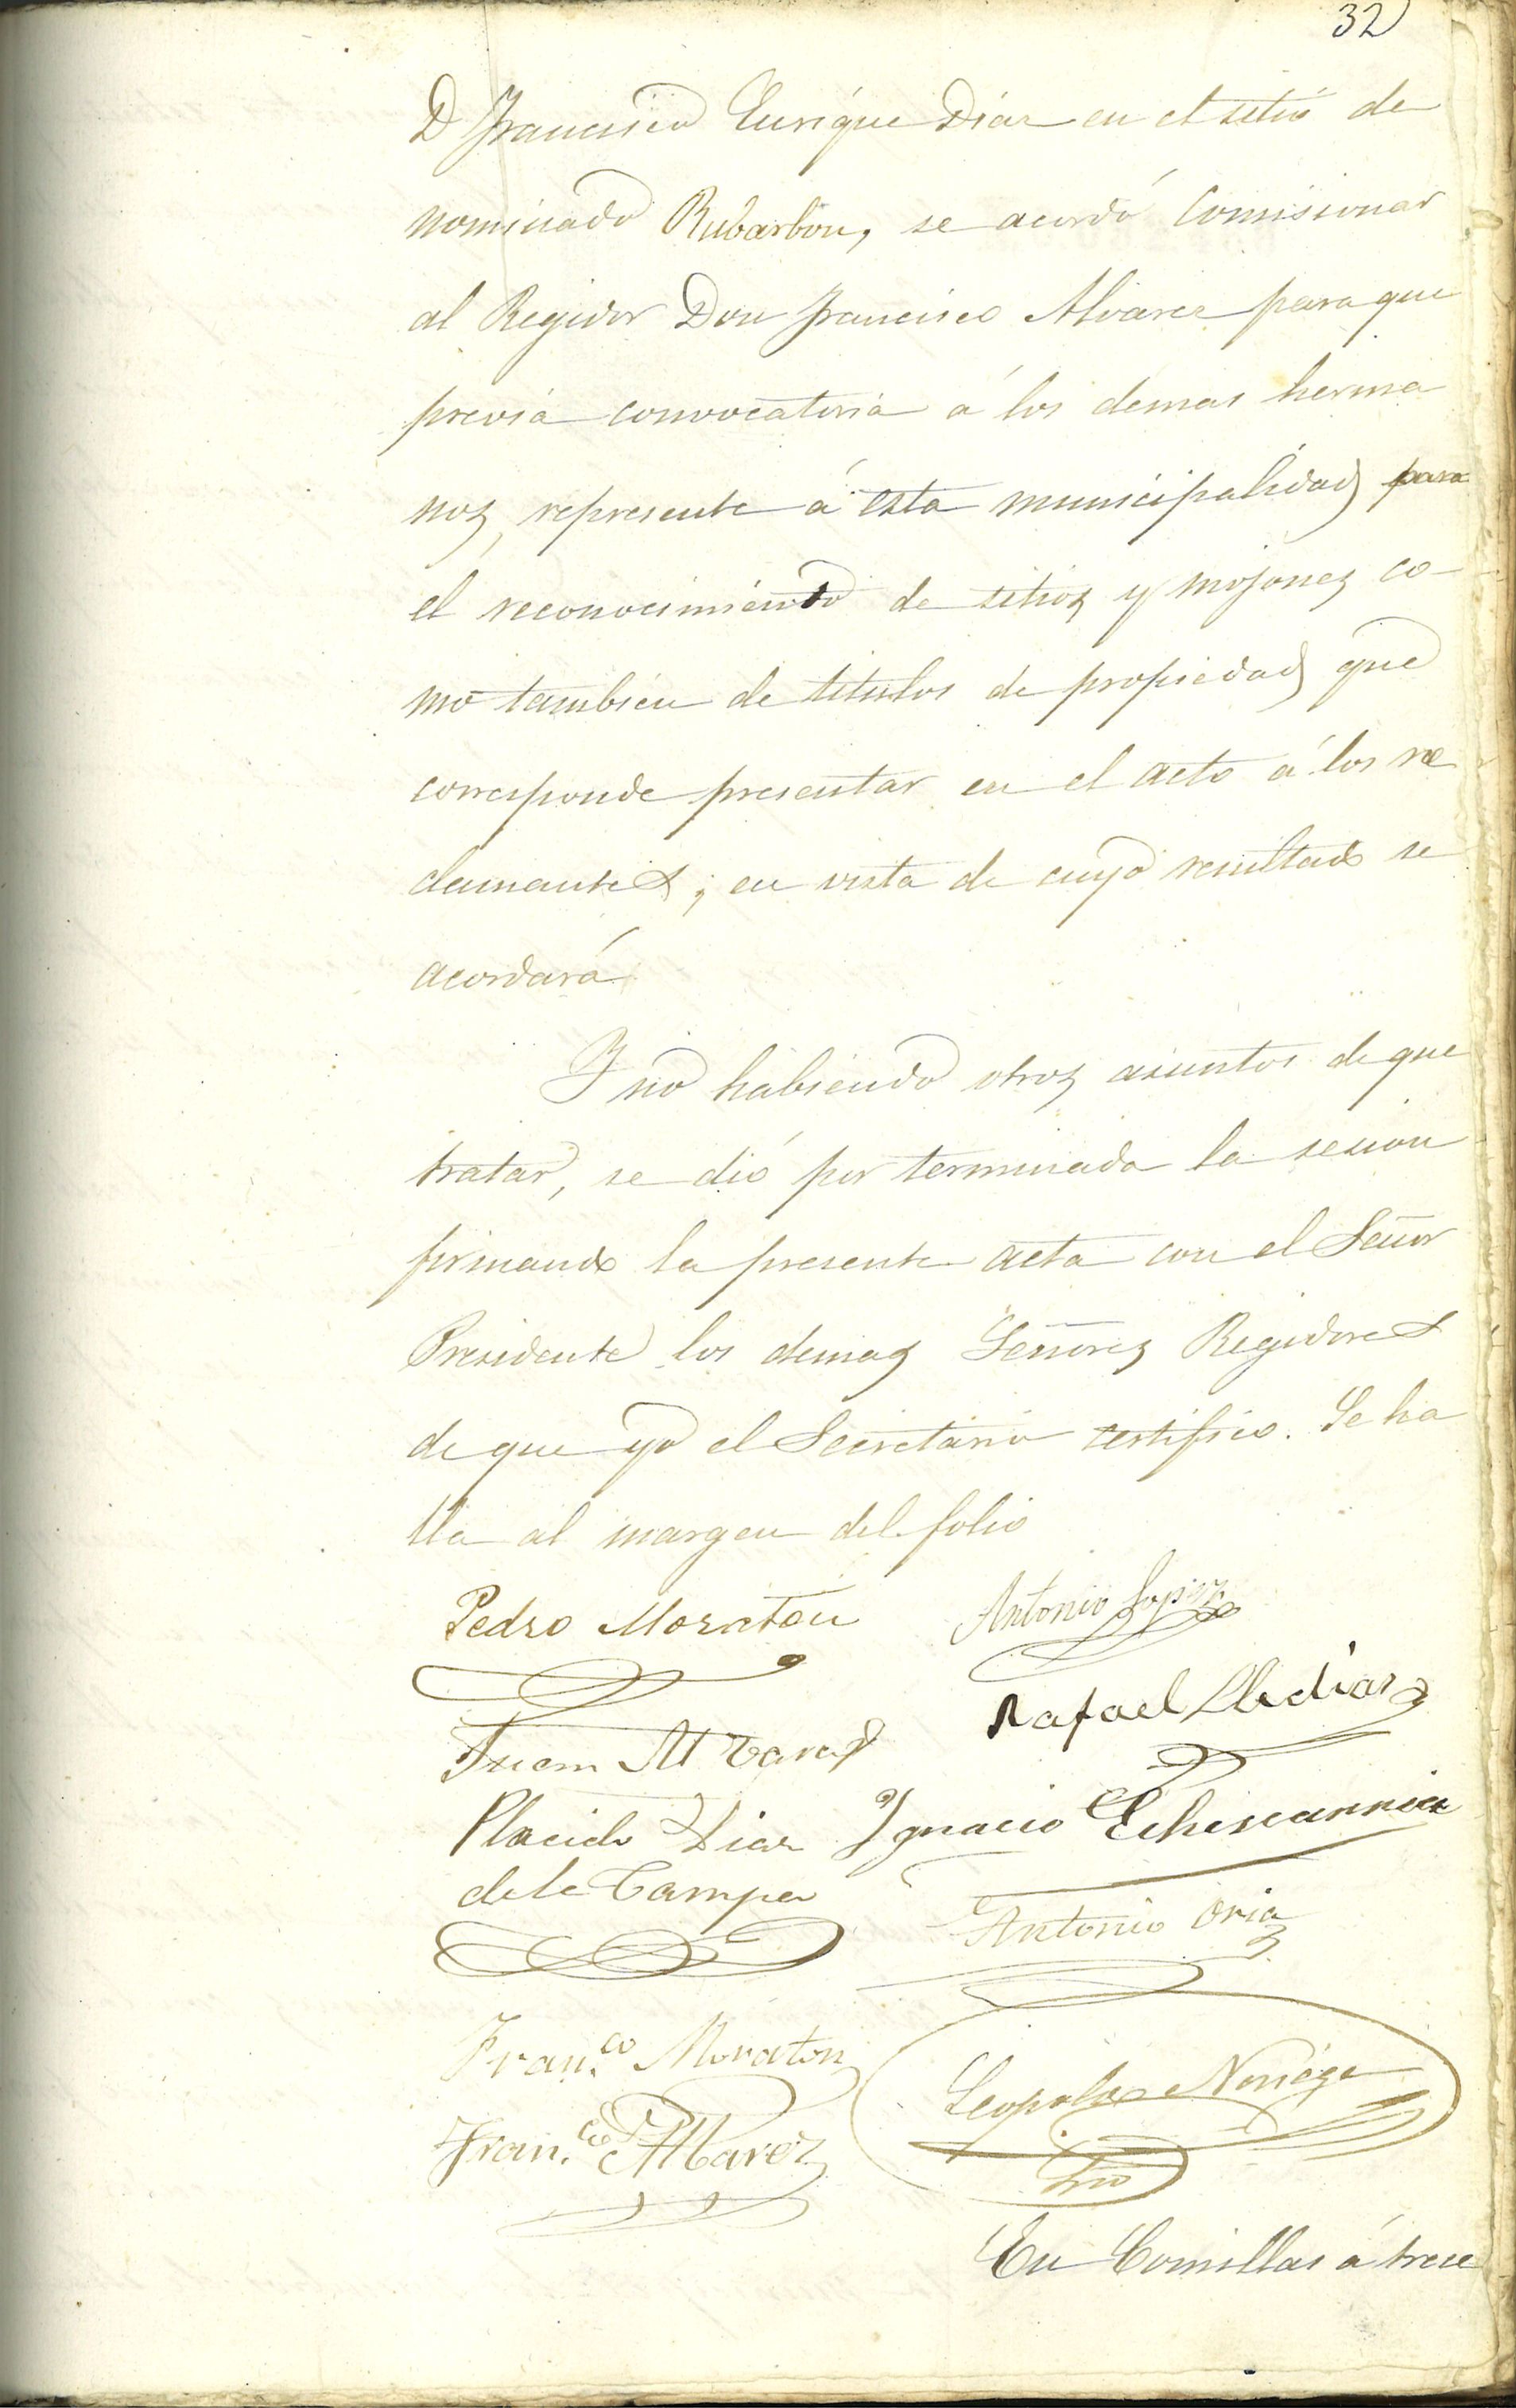 32
D Francisco Enrique Diaz en el sitio de
nominado Rubarbon, se acordó comisionar
al Regidor Don Francisco Alvarez para que
previa convocatoria á los demas herma
nos, represente á esta municipalidad para
el reconocimiento de sitios y mojones co-
mo tambien de titulos de propiedad que
corresponde presentar en el acto á los re
clamantes; en vista de cuyo resultado se
acordará
Y no habiendo otros asuntos de que
tratar, se dió por terminada la sesion
firmando la presente acta con el Señor
Presidente los demas Señores Regidores
de que yo el Secretario certifico. Se ha
lla al margen del folio
Pedro Moraton Antonio Lopez
Rafael
Juan Alvarez
Placido Diaz Ygnacio
de la Campa
Antonio Oria
Fran.co Moraton
Leopoldo Noriega
Fran.co Alvarez
Srio
En Comillas á trece